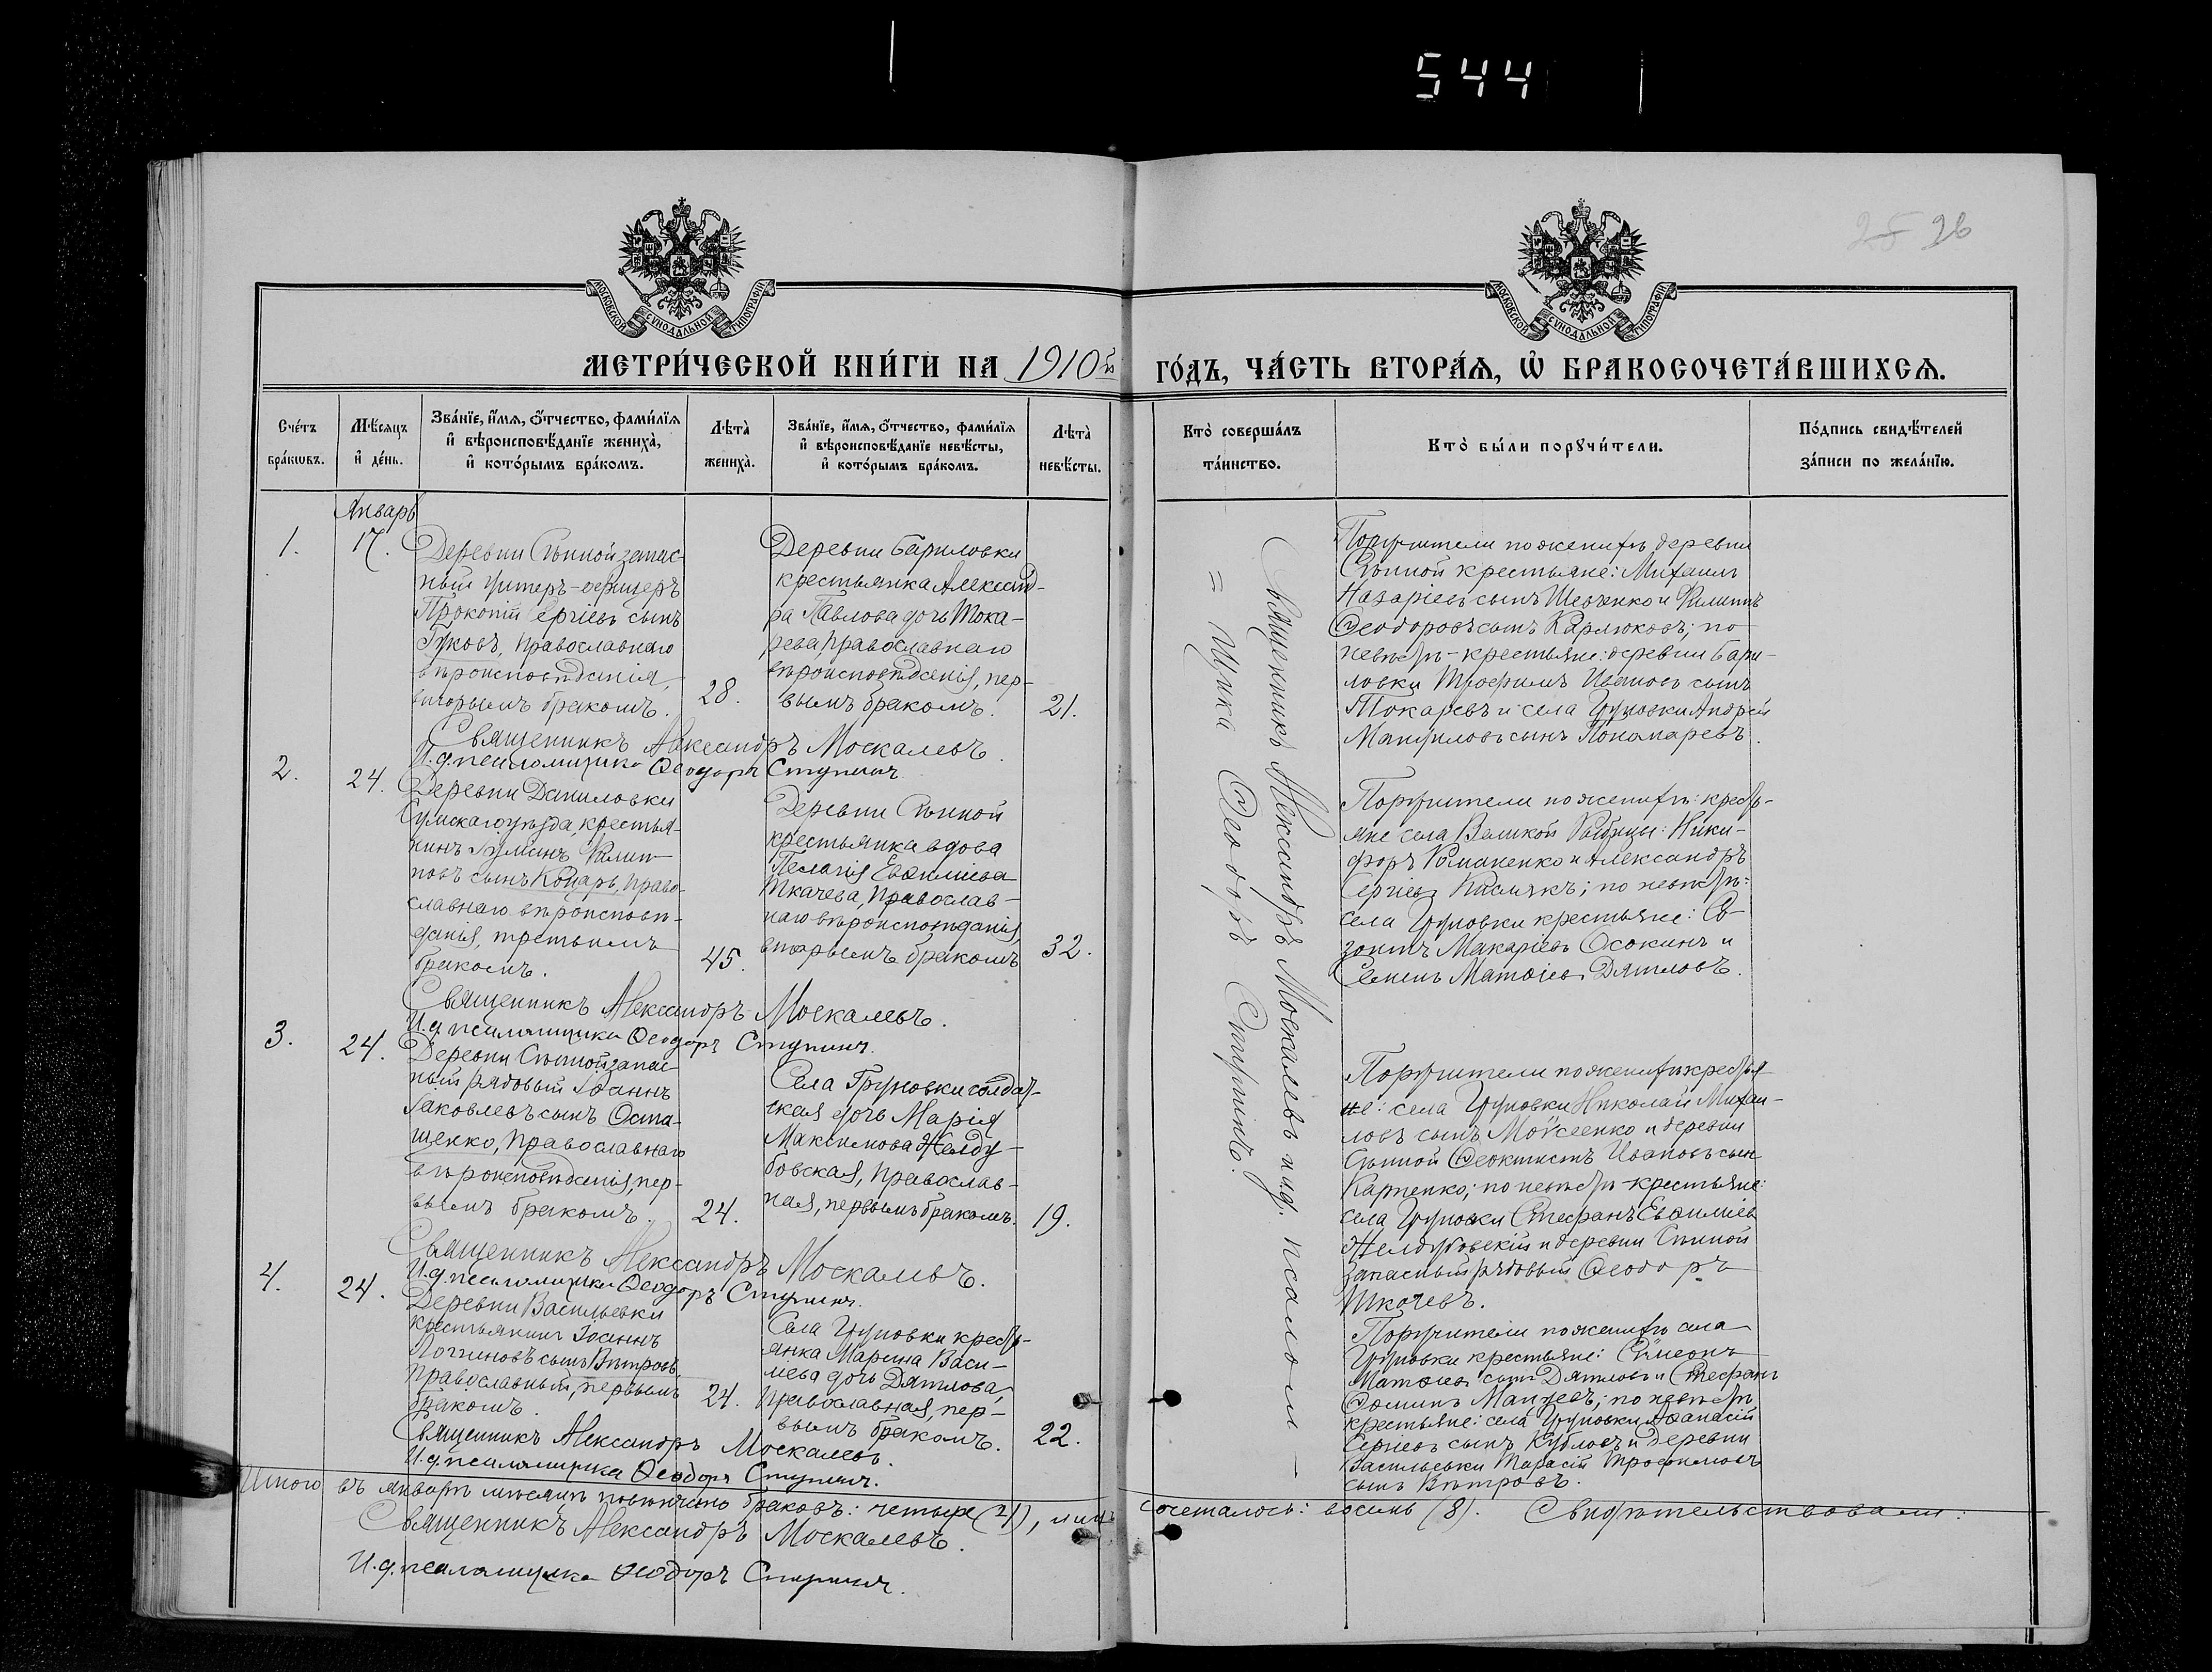 544
25 26
МОСКОВСКОЙ СѴНОДАЛЬНОЙ ТИПОГРАФІИ
МОСКОВСКОЙ СѴНОДАЛЬНОЙ ТИПОГРАФІИ
МЕТРИ́ЧЕСКОЙ КНИ́ГИ НА 1910й ГО́ДЪ, ЧА́СТЬ ВТОРА́Ѧ, Ѡ҆ БРАКОСОЧЕТА́ВШИХСѦ.
Сче́тъ
бра́кωвъ.
Мѣ́сяцъ
и҆ де́нь.
Зва́нїе, и҆́мѧ, ѻ҆́тчество, фами́лїѧ
и҆ вѣроисповѣ́данїе жениха̀,
и҆ кото́рымъ бра́комъ.
Лѣта̀
жениха̀.
Зва́нїе, и҆́мѧ, ѻ҆́тчество, фами́лїѧ
и҆ вѣроисповѣ́данїе невѣ́сты,
и҆ кото́рымъ бра́комъ.
Лѣта̀
невѣ́сты.
Кто̀ соверша́лъ
та́инство.
Кто̀ бы́ли порꙋчи́тели.
По́дпись свидѣ́телей
за́писи по жела́нїю.
Январь
1.
17.
Деревни Сѣнной запас-
ный унтеръ-офицеръ
Прокопій Сергіевъ сынъ
Гуковъ, православнаго
вѣроисповѣданія,
вторымъ бракомъ.
28.
Деревни Бариловки
крестьянка Александ-
ра Павлова дочь Тока-
рева, православнаго
вѣроисповѣданія, пер-
вымъ бракомъ.
21.
Поручители по женихѣ деревни
Сѣнной крестьяне: Михаилъ
Назаріевъ сынъ Шевченко и Филиппъ
Ѳеодоровъ сынъ Карлюковъ; по
невѣстѣ - крестьяне: деревни Бари-
ловки Трофимъ Ивановъ сынъ
Токаревъ и села Груновки Андрей
Мануиловъ сынъ Пономаревъ.
Священникъ Александръ Москалевъ.
И.д. псаломщика Ѳеодоръ Ступинъ
2.
24.
Деревни Даниловки
Сумскаго уѣзда, крестья-
нинъ Филип-
повъ сынъ право-
славнаго вѣроисповѣ-
данія, третьимъ
бракомъ.
45.
Деревни Сѣнной
крестьянка вдова
Пелагія Евѳиміева
Ткачева, православ-
наго вѣроисповѣданія,
вторымъ бракомъ
32.
Поручители по женихѣ: кресть-
яне села Великой Рыбицы: Ники-
форъ Романенко и Александръ
Сергіевъ по невѣстѣ:
села Груновки крестьяне: Со-
зонтъ Макаріевъ Осокинъ и
Семенъ Матѳіевъ Дятловъ.
Священникъ Александръ Москалевъ.
И.д. псаломщика Ѳеодоръ Ступинъ.
3.
24.
Деревни Сѣнной запас-
ный рядовый Іоаннъ
Іаковлевъ сынъ Оста-
щенко, православнаго
вѣроисповѣданія, пер-
вымъ бракомъ.
24.
Села Груновки солдат-
ская дочь Марія
Максимова Желду-
бовская, православ-
ная, первымъ бракомъ.
19.
Поручители по женихѣ крестья-
не: села Груновки Николай Михаи-
ловъ сынъ Моѵсеенко и деревни
Сѣнной Ѳеоктистъ Ивановъ сынъ
Карпенко; по невѣстѣ - крестьяне:
села Груновки Стефанъ Евѳиміевъ
Желдубовскій и деревни Сѣнной
запасный рядовый Ѳеодоръ
Ткачевъ.
Священникъ Александръ Москалевъ.
И.д. псаломщика Ѳеодоръ Ступинъ.
4.
24.
Деревни Васильевки
крестьянинъ Іоаннъ
Логгиновъ сынъ Вѣтровъ,
православный, первымъ
бракомъ.
24.
Села Груновки кресть-
янка Марина Васи-
ліева дочь Дятлова,
православная, пер-
вымъ бракомъ.
22.
Поручители по женихѣ села
Груновки крестьяне: Сѵмеонъ
Матѳіевъ сынъ Дятловъ и Стефанъ
Ѳоминъ по невѣстѣ
крестьяне: села Груновки Аѳанасій
Сергіевъ сынъ Кубловъ и деревни
Васильевки Тарасій Трофимовъ
сынъ Вѣтровъ.
Священникъ Александръ Москалевъ.
И.д. псаломщика Ѳеодоръ Ступинъ.
Священникъ Александръ Москалевъ и и.д. псалом-
= щика Ѳеодоръ Ступинъ.
Итого въ январѣ мѣсяцѣ повѣнчано браковъ: четыре (4), лицъ сочеталось: восемь (8). Свидѣтельствовали:
Священникъ Александръ Москалевъ.
И.д. псаломщика Ѳеодоръ Ступинъ.